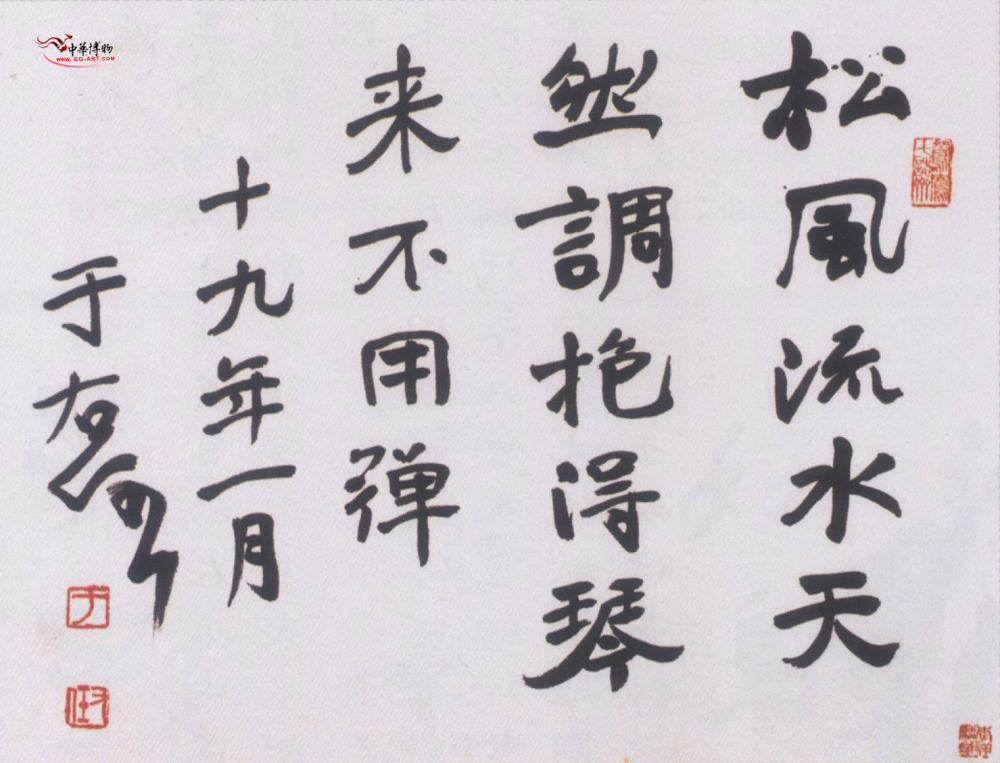 松風流水天
然調抱得琴
来不用弹
十九年一月
于右任
中華博物
www.gg-art.com